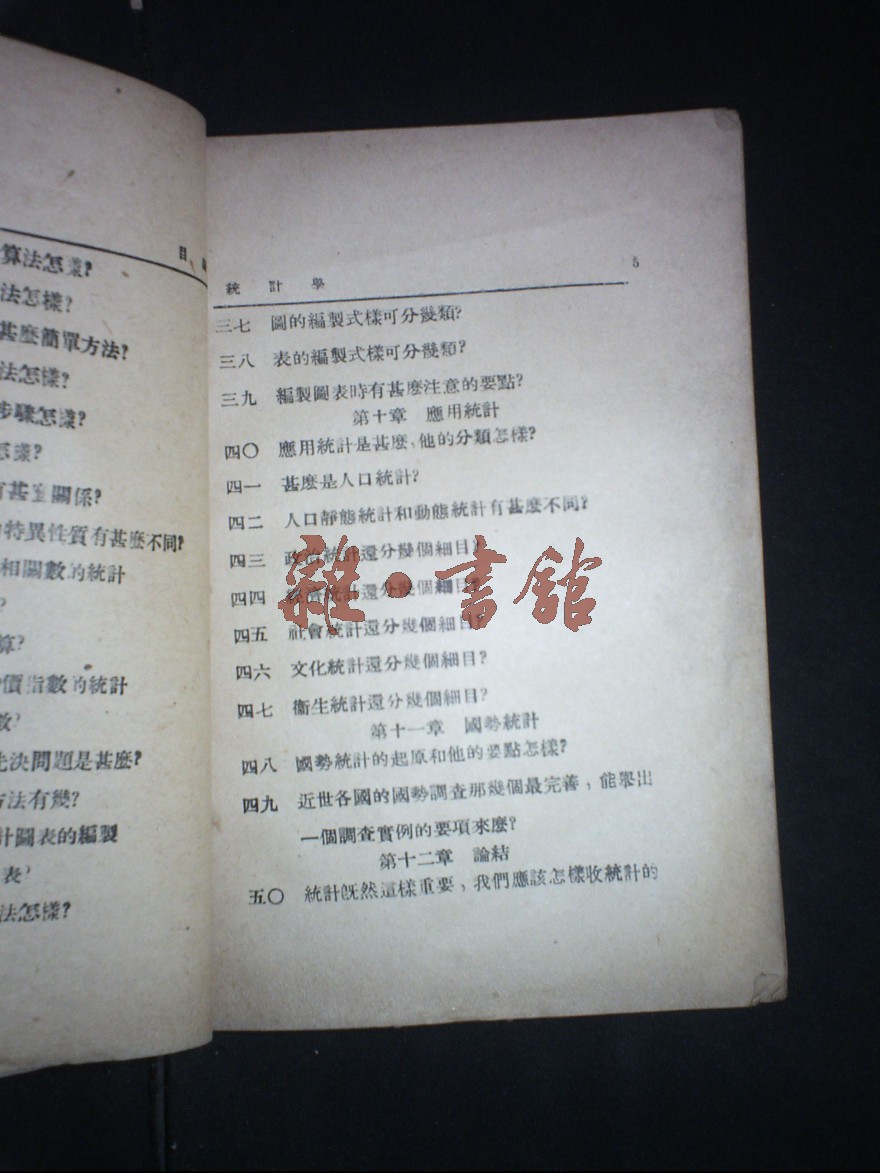 目
算法怎樣?
法怎樣?
甚麼簡單方法?
法怎樣?
步驟怎樣?
怎樣?
有甚麼關係?
特異性質有甚麼不同?
相關數的統計
?
算?
價指數的統計
數?
先決問題是甚麼?
方法有幾?
計圖表的編製
表?
法怎樣?
統計學 5
三七 圖的編製式樣可分幾類?
三八 表的編製式樣可分幾類?
三九 編製圖表時有甚麼注意的要點?
第十章 應用統計
四〇 應用統計是甚麼,他的分類怎樣?
四一 甚麼是人口統計?
四二 人口靜態統計和動態統計有甚麼不同?
四三 政治統計還分幾個細目?
四四 經濟統計還分幾個細目?
四五 社會統計還分幾個細目?
四六 文化統計還分幾個細目?
四七 衞生統計還分幾個細目?
第十一章 國勢統計
四八 國勢統計的起原和他的要點怎樣?
四九 近世各國的國勢調查那幾個最完善,能舉出
一個調查實例的要項來麼?
第十二章 論結
五〇 統計既然這樣重要,我們應該怎樣收統計的
雜·書館